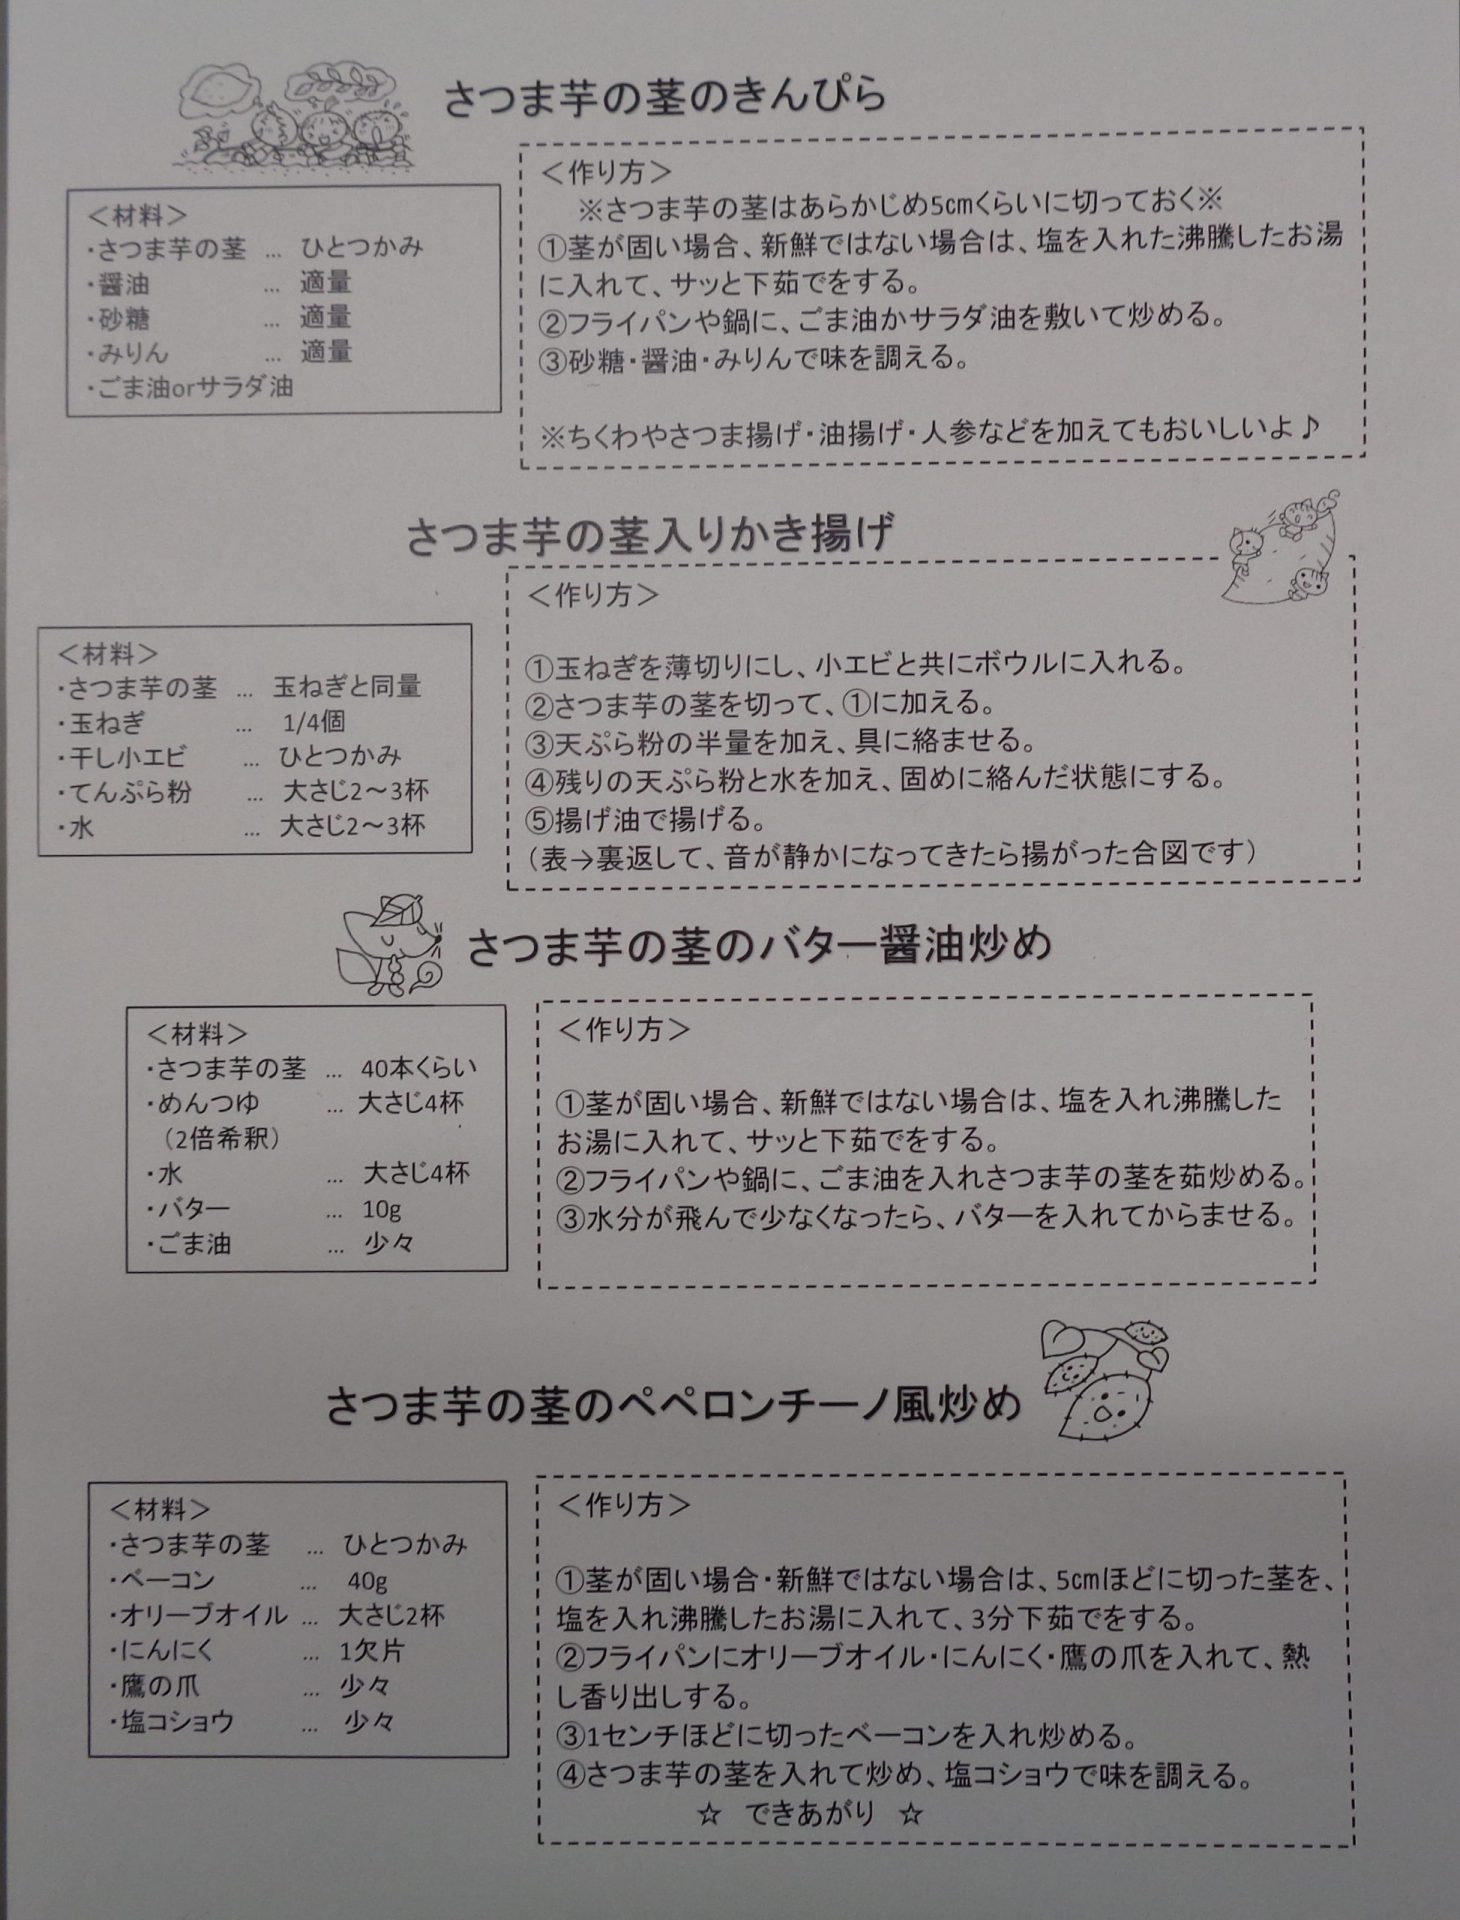 さつま芋の茎のきんぴら
＜材料＞
・さつま芋の茎 … ひとつかみ
・醤油 … 適量
・砂糖 … 適量
・みりん … 適量
・ごま油orサラダ油
＜作り方＞
※さつま芋の茎はあらかじめ5㎝くらいに切っておく※
①茎が固い場合、新鮮ではない場合は、塩を入れた沸騰したお湯
に入れて、サッと下茹でをする。
②フライパンや鍋に、ごま油かサラダ油を敷いて炒める。
③砂糖・醤油・みりんで味を調える。
※ちくわやさつま揚げ・油揚げ・人参などを加えてもおいしいよ♪
さつま芋の茎入りかき揚げ
＜材料＞
・さつま芋の茎 … 玉ねぎと同量
・玉ねぎ … 1/4個
・干し小エビ … ひとつかみ
・てんぷら粉 … 大さじ2～3杯
・水 … 大さじ2～3杯
＜作り方＞
①玉ねぎを薄切りにし、小エビと共にボウルに入れる。
②さつま芋の茎を切って、①に加える。
③天ぷら粉の半量を加え、具に絡ませる。
④残りの天ぷら粉と水を加え、固めに絡んだ状態にする。
⑤揚げ油で揚げる。
（表→裏返して、音が静かになってきたら揚がった合図です）
さつま芋の茎のバター醤油炒め
＜材料＞
・さつま芋の茎 … 40本くらい
・めんつゆ … 大さじ4杯
（2倍希釈）
・水 … 大さじ4杯
・バター … 10g
・ごま油 … 少々
＜作り方＞
①茎が固い場合、新鮮ではない場合は、塩を入れ沸騰した
お湯に入れて、サッと下茹でをする。
②フライパンや鍋に、ごま油を入れさつま芋の茎を茹炒める。
③水分が飛んで少なくなったら、バターを入れてからませる。
さつま芋の茎のペペロンチーノ風炒め
＜材料＞
・さつま芋の茎 … ひとつかみ
・ベーコン … 40g
・オリーブオイル … 大さじ2杯
・にんにく … 1欠片
・鷹の爪 … 少々
・塩コショウ … 少々
＜作り方＞
①茎が固い場合・新鮮ではない場合は、5㎝ほどに切った茎を、
塩を入れ沸騰したお湯に入れて、3分下茹でをする。
②フライパンにオリーブオイル・にんにく・鷹の爪を入れて、熱
し香り出しする。
③1センチほどに切ったベーコンを入れ炒める。
④さつま芋の茎を入れて炒め、塩コショウで味を調える。
☆ できあがり ☆